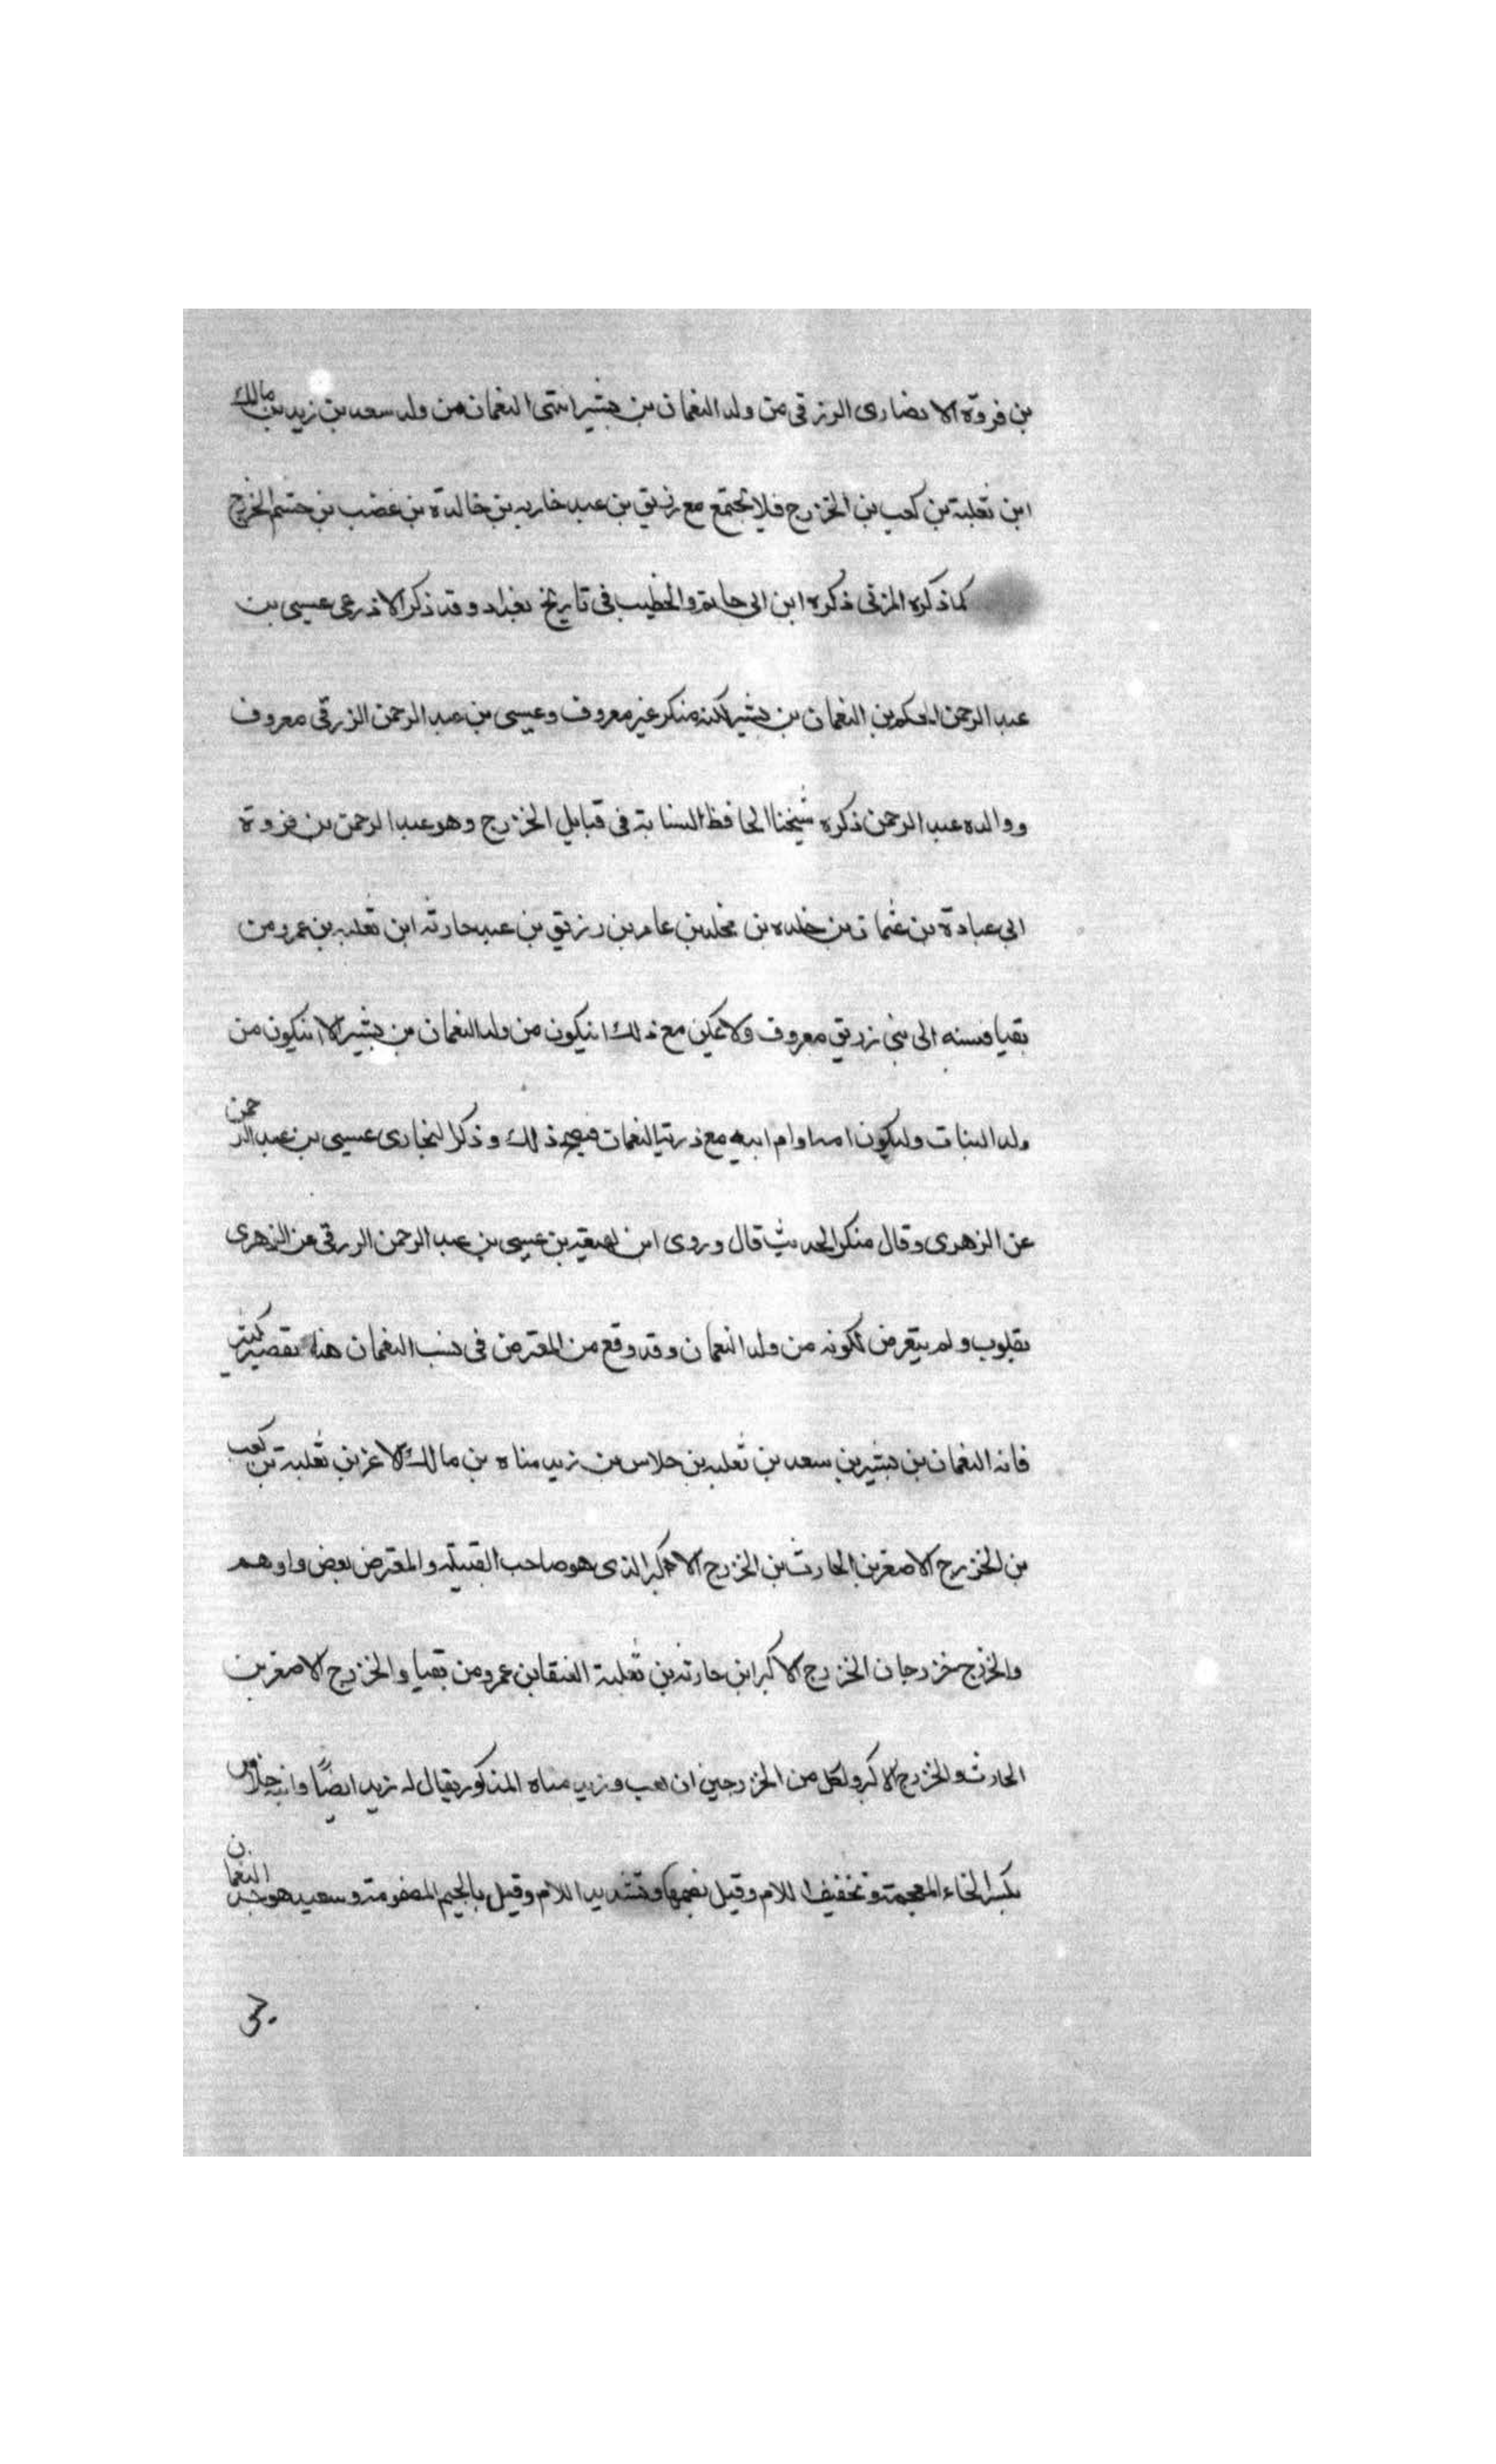 بن فروة الانصارى الزرقى من ولد النعمان بن بشير انتهى النعمان من ولد سعد بن زيد بن مالك
ابن ثعلبة بن كعب بن الخزرج فلا تجتمع مع زريق بن عبد خاربه بن خالدة بن غضب بن جشم الخزرج
كما ذكره المزنى ذكره ابن ابى حاتم والخطيب فى تاريخ بغداد وقد ذكر الاذرعى عيسى بن
عبد الرحمن الحكم بن النعمان بن بشير لكنه منكر غير معروف وعيسى بن عبد الرحمن الزرقى معروف
ووالده عبد الرحمن ذكره شيخنا الحافظ النسابة فى قبايل الخزرج وهو عبد الرحمن بن فروة
ابى عبادة بن عثمان بن خلده بن مخلد بن عامر بن زريق بن عبد حارثه ابن ثعلبه بن عمرو من
بقيا فنسبه الى بنى زريق معروف ولا يمكن مع ذلك ان يكون من ولد النعمان بن بشير الا ان يكون من
ولد البنات وليكون امه او ام ابيه مع ذرية النعمان فيصح ذلك وذكر البخارى عيسى بن عبد الرحمن
عن الزهرى وقال منكر الحديث قال وروى ابن لهيعه بن عيسى بن عبد الرحمن الزرقى عن الزهرى
بقلوب ولم يتعرض لكونه من ولد النعمان وقد وقع من المعترض فى نسب النعمان هذا تقصير كثير
فانه النعمان بن بشير بن سعد بن ثعلبه بن خلاس بن زيد مناه بن مالك الاغر بن ثعلبة بن كعب
بن الخزرج الاصغر بن الحارث بن الخزرج الاكبر الذى هو صاحب القبيله والمعترض بعض واوهم
والخزرج خزرجان الخزرج الاكبر ابن حارثه بن ثعلبة العنقا بن عمرو من بقيا والخزرج الاصغر بن
الحارث والخزرج الاكبر ولكل من الخزرجين ان لعب وزيد مناه المذكور يقال له زيد ايضًا وابنه خلاس
بكسر الخاء المعجمة وتخفيف اللام وقيل بضمها وتشديد اللام وقيل بالجيم المضمومة وسعيد هو جد النعمان